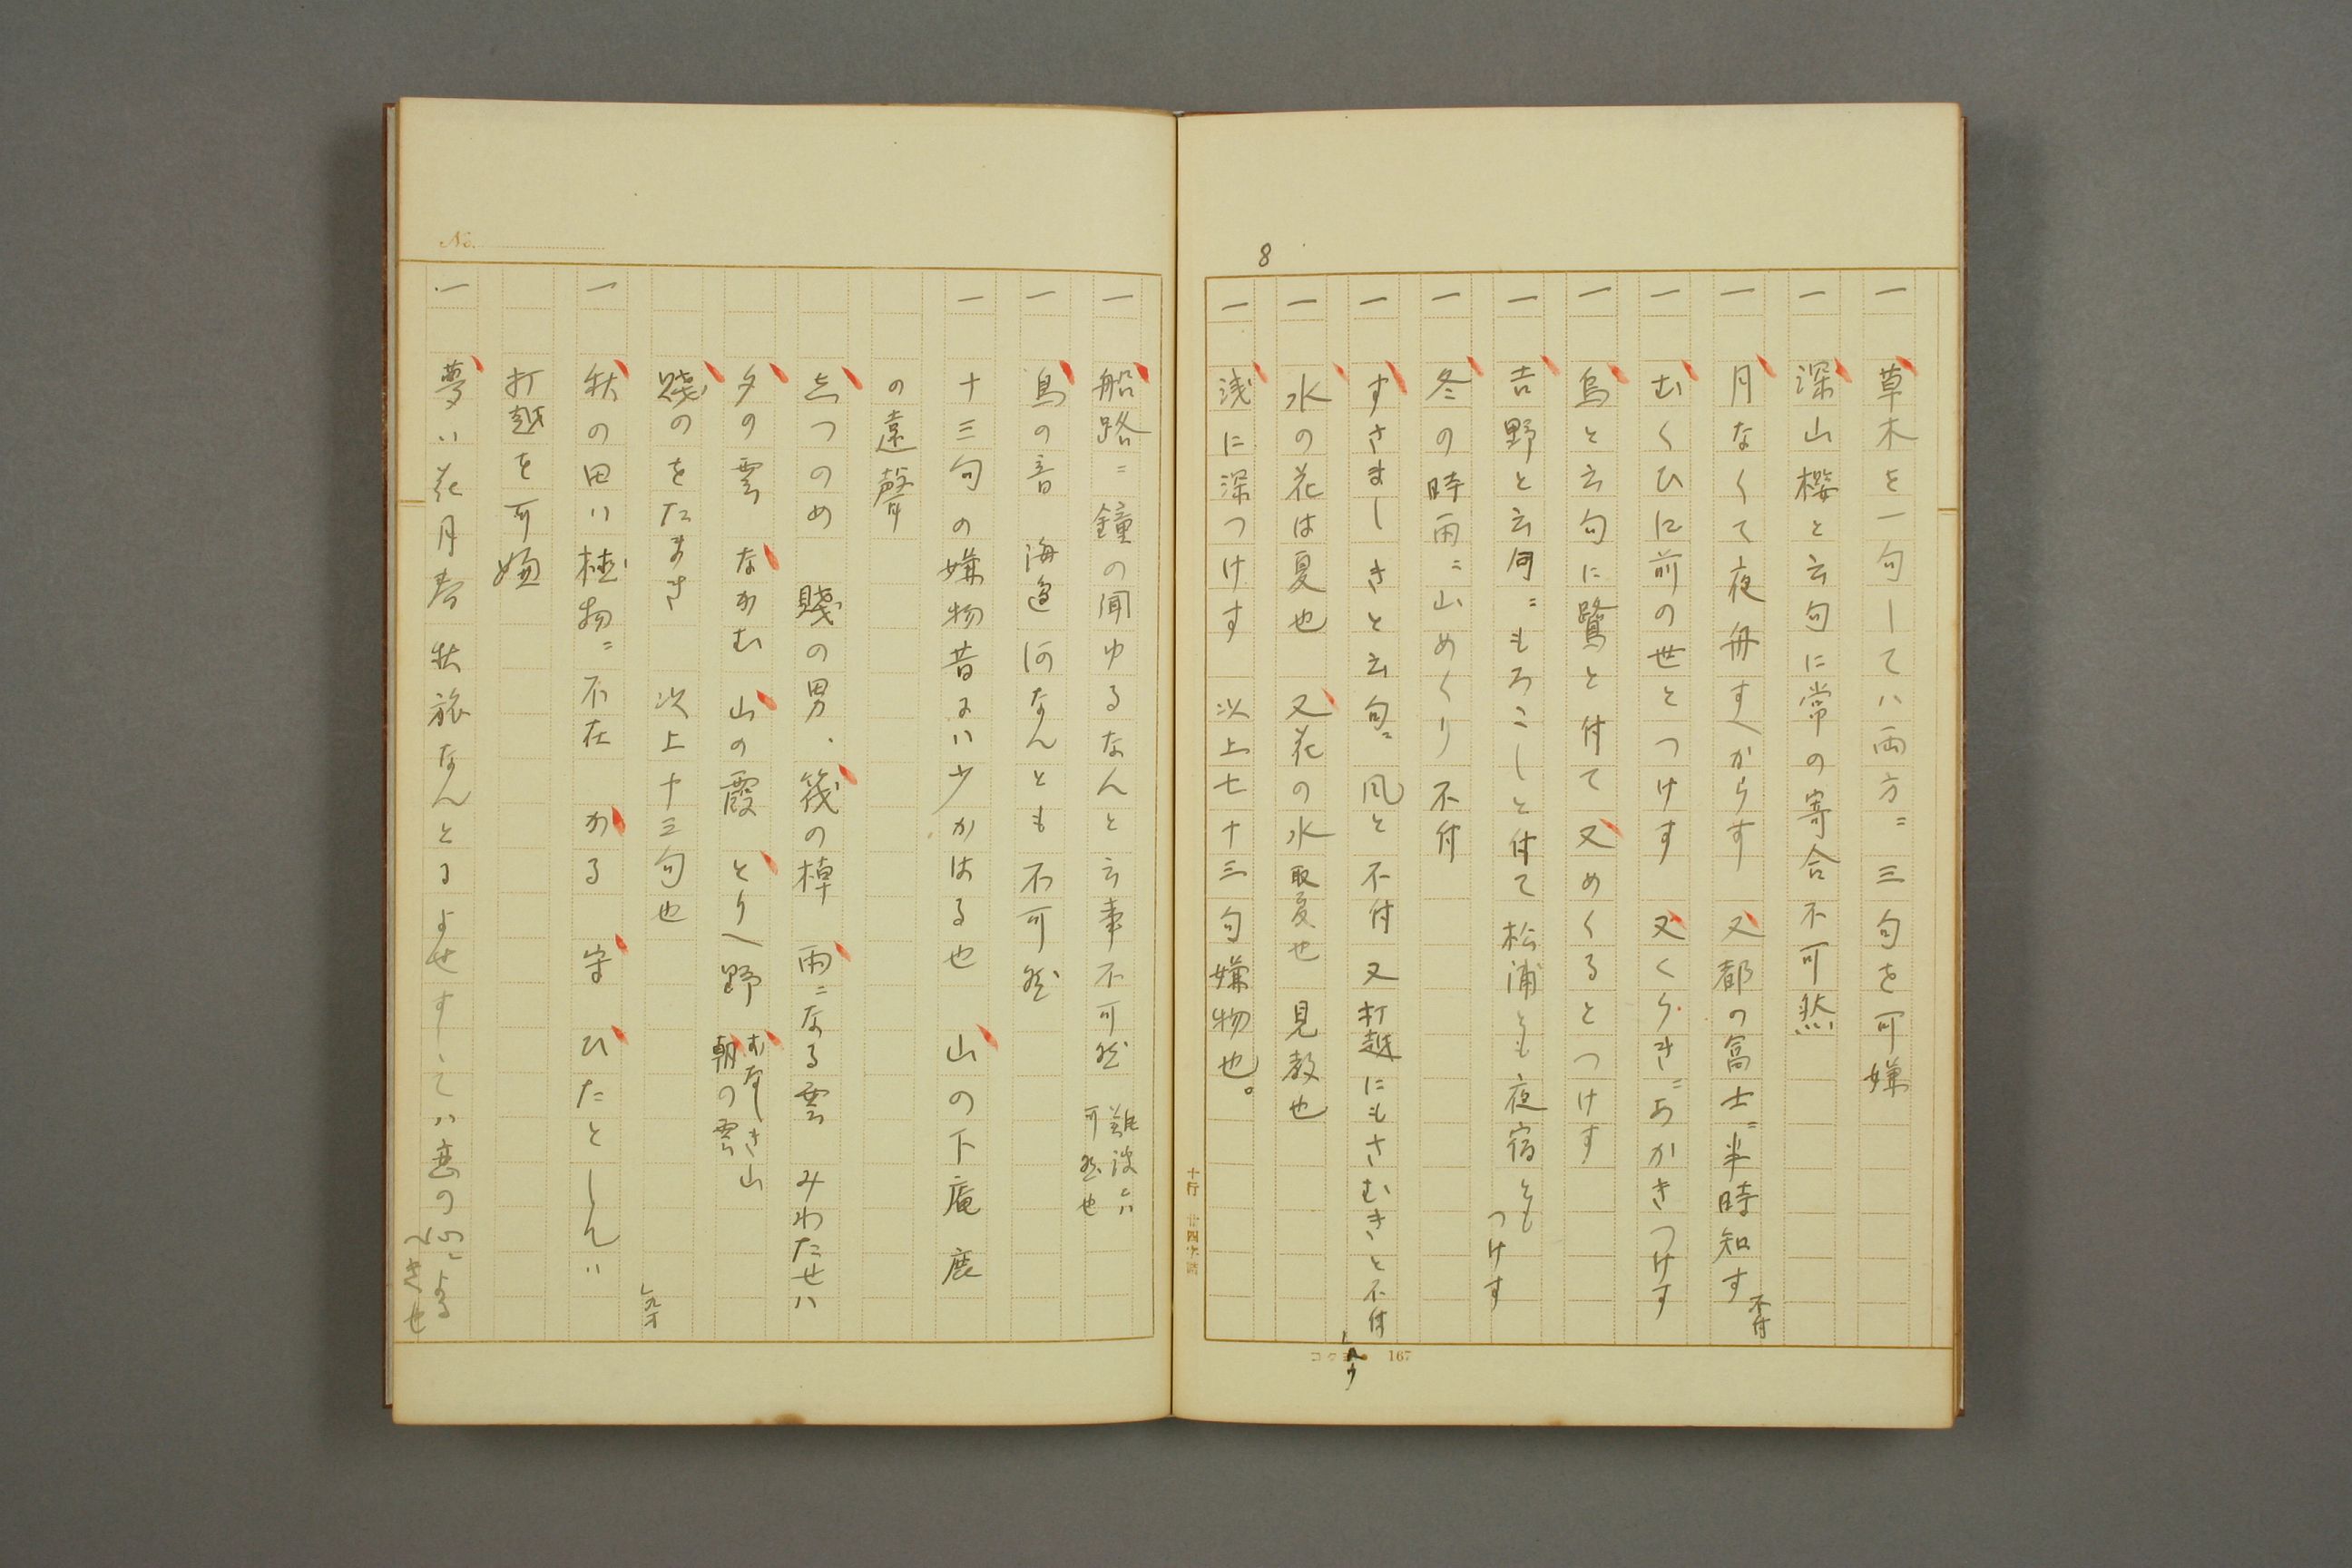 8
一 草木を一句してハ両方ニ三句を可嫌
一 深山櫻と云句に常の寄合不可然
一 月なくて夜舟すへからす 又都の富士ニ半時知す 不付
一 むくひに前の世とつけす 又くらきニあかきつけす
一 烏と云句に鷺と付て又めくるとつけす
一 吉野と云句ニもろこしと付て松浦とも夜宿とも つけす
一 冬の時雨ニ山めくり不付
一 すさましきと云句ニ風と不付 又打越にもさむきと不付
一 水の花は夏也 又花の水 見教也
一 浅に深つけす 以上七十三句嫌物也。
十行 廿四字詰
コクヨ 167
No.
一 船路ニ鐘の聞ゆるなんと云事不可然 難波ニハ 可然也
一 鳥の音 海邊 河なんとも不可然
一 十三句の嫌物昔ハ少かはる也 山の下庵 鹿
の遠聲
しつのめ 賤の男、筏の棹 雨ニなる雲 みわたせハ
夕の雲 なかむ 山の霞 とりへ野 むなしき山 朝の雲
賤のをたまき 以上十三句也
一 秋の田ハ植物ニ不在 かる 守 ひたとしんハ
打越を可嫌
一 夢ハ花月春秋旅なんとによせすしてハ恋の句ニよる へき也